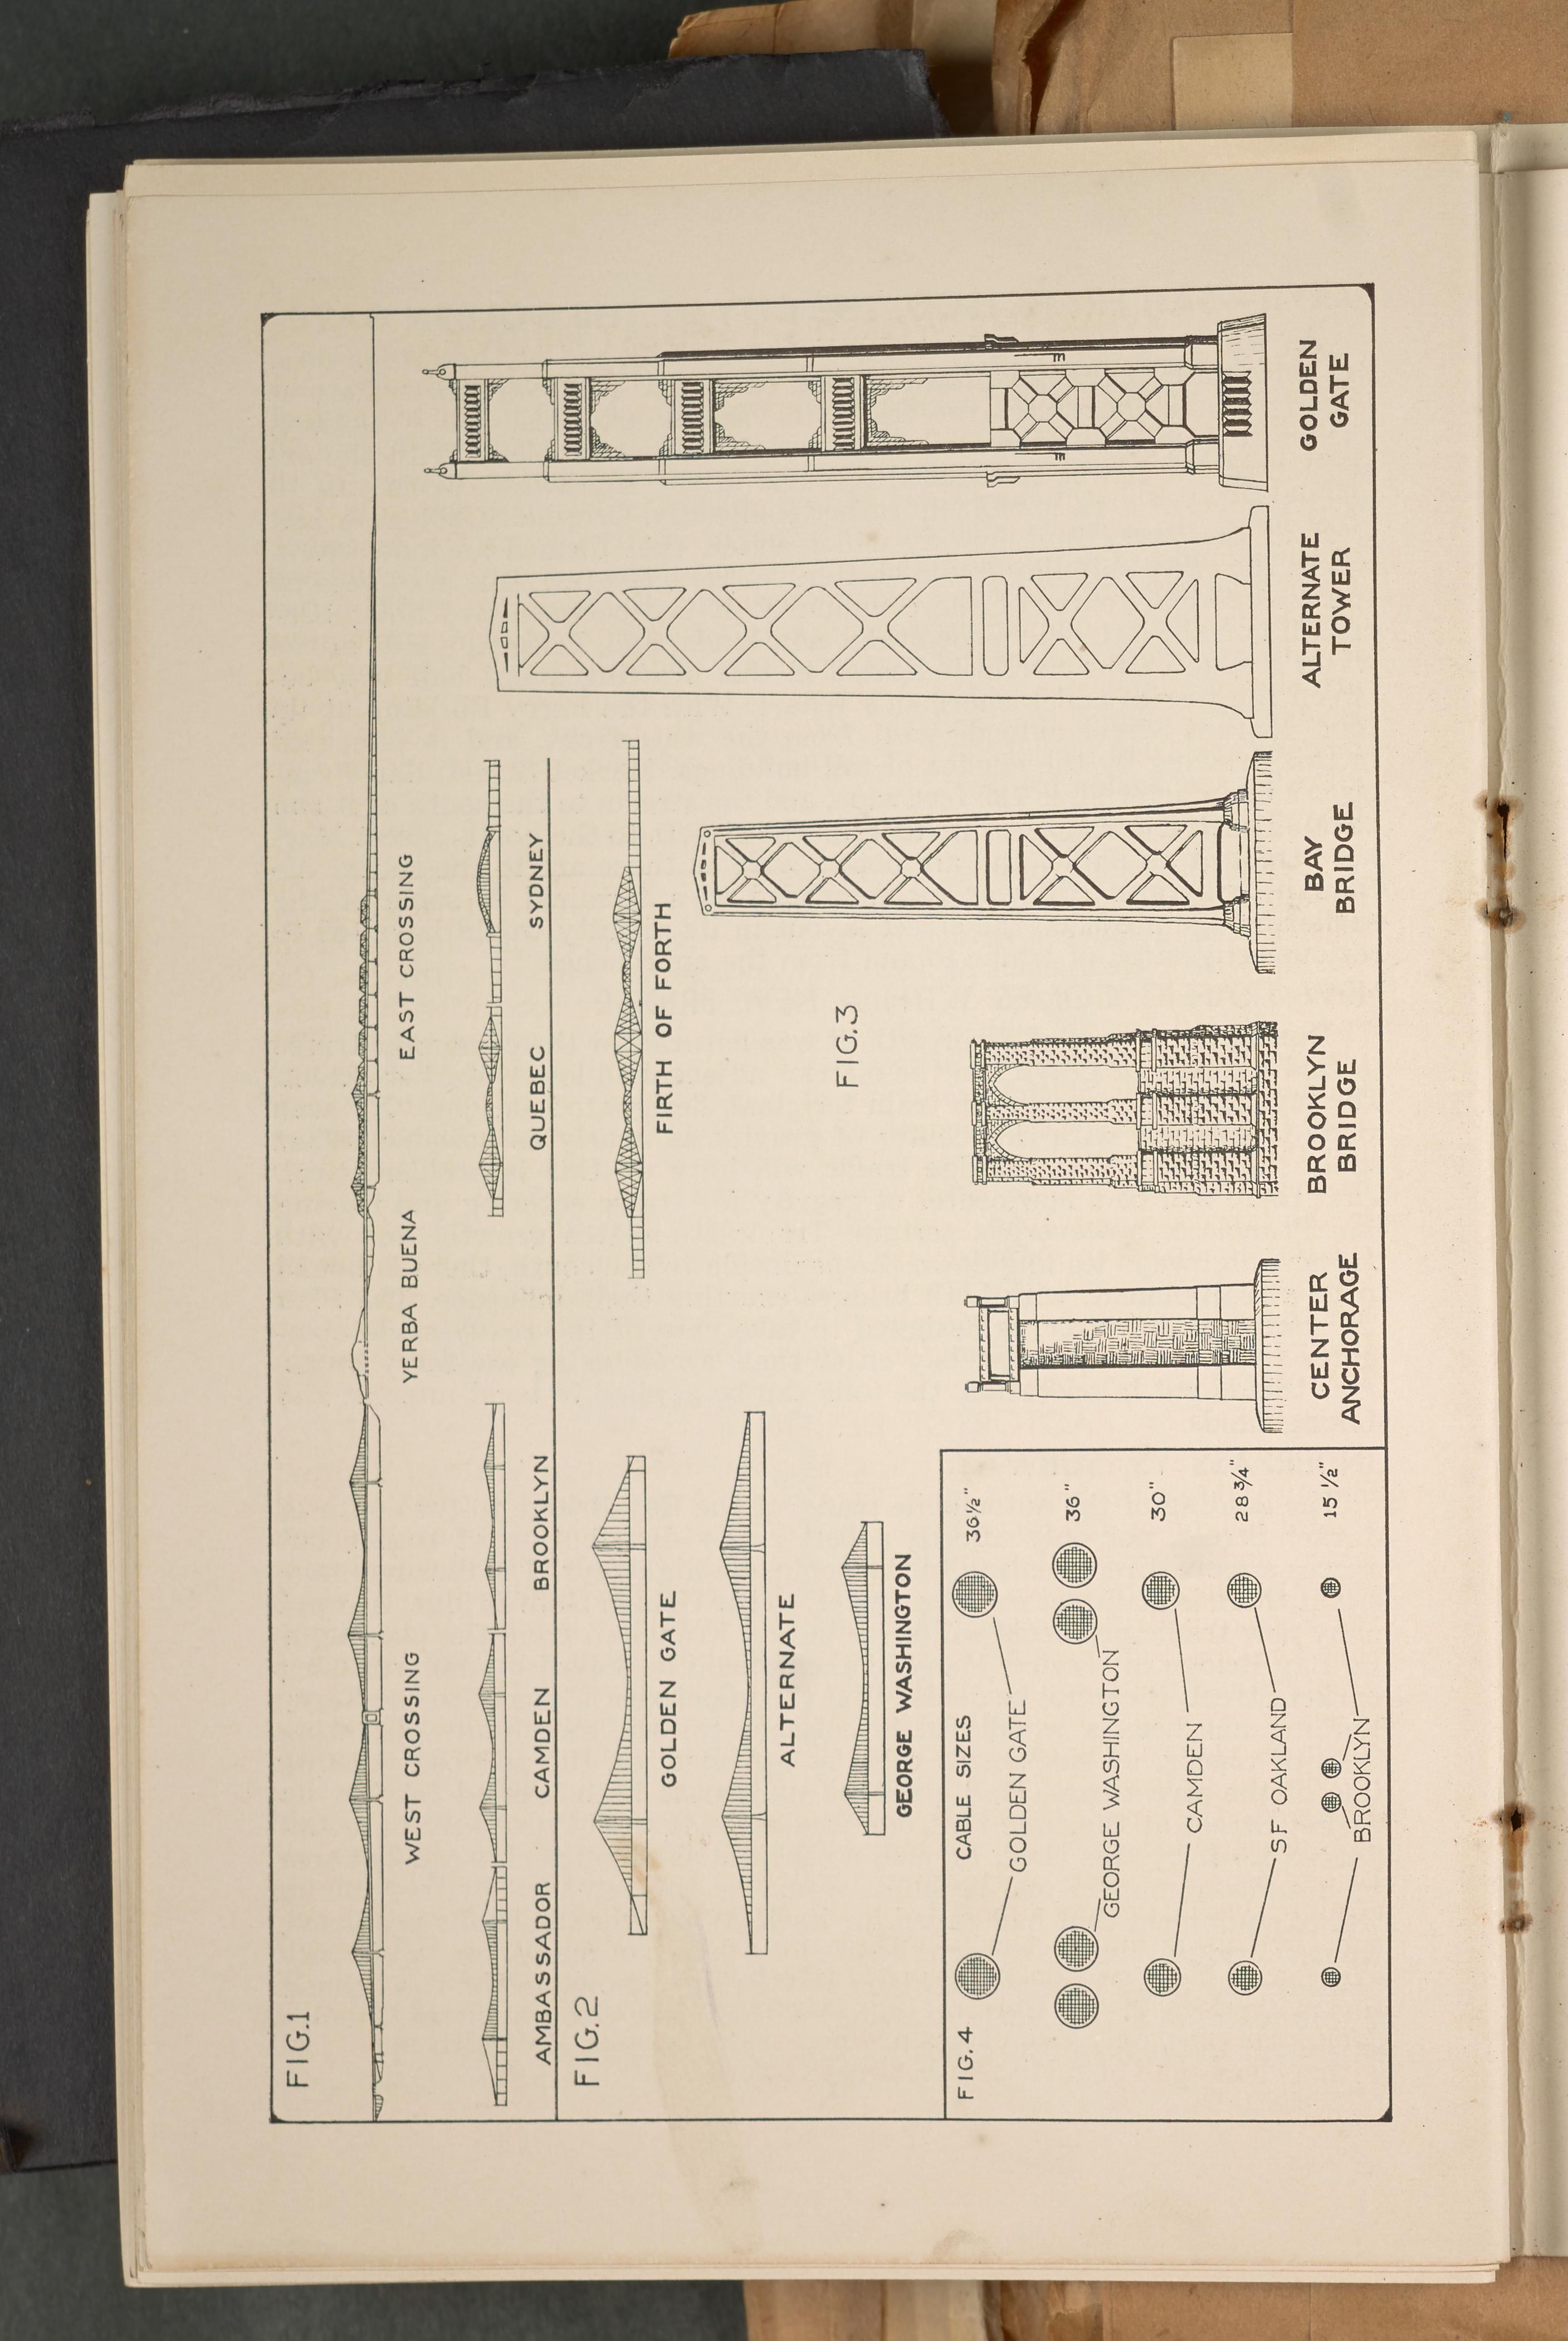 FIG.1
WEST CROSSING
YERBA BUENA
EAST CROSSING
AMBASSADOR
CAMDEN
BROOKLYN
QUEBEC
SYDNEY
FIG.2
GOLDEN GATE
ALTERNATE
GEORGE WASHINGTON
FIRTH OF FORTH
FIG.3
CENTER
ANCHORAGE
BROOKLYN
BRIDGE
BAY
BRIDGE
ALTERNATE
TOWER
GOLDEN
GATE
FIG.4
CABLE SIZES
GOLDEN GATE
36½"
GEORGE WASHINGTON
36"
CAMDEN
30"
SF OAKLAND
28¾"
BROOKLYN
15½"